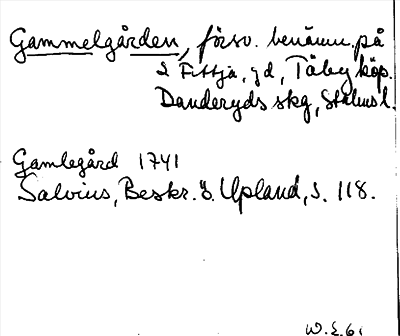 Gammelgården, försv. benämn. på
2 Fittja, gd, Täby köp.
Danderyds skg, Sthlms l.
Gamlegård 1741
Salvius, Beskr. ö. Upland, s. 118.
W.E. 61